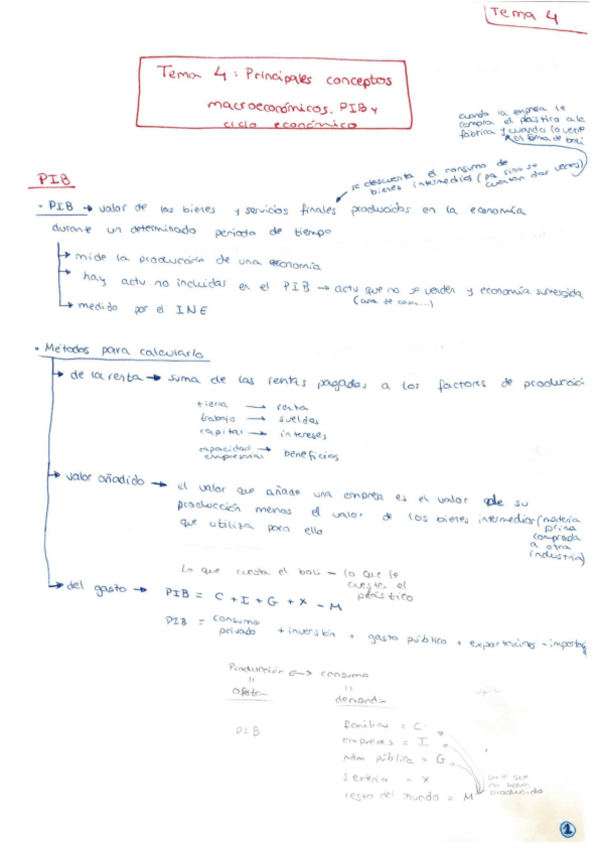 Tema 4
Tema 4: Principales conceptos
macroeconómicos. PIB y
ciclo económico
cuando la empresa le
compra el plástico a la
fábrica y cuando lo vende
en forma de boli
se descuenta el consumo de
bienes intermedios (pq sino se
cuentan dos veces)
PIB
· PIB → valor de los bienes y servicios finales producidos en la economía
durante un determinado periodo de tiempo
→ mide la producción de una economía
→ hay actv no incluidas en el PIB → actv que no se venden y economía sumergida
(ama de casa...)
→ medido por el INE
· Métodos para calcularlo
→ de la renta → suma de las rentas pagadas a los factores de producción
tierra → renta
trabajo → sueldos
capital → intereses
capacidad empresarial → beneficios
→ valor añadido → el valor que añade una empresa es el valor de su
producción menos el valor de los bienes intermedios (materia
que utiliza para ello
prima
comprada
a otra
industria)
Lo que cuesta el boli - lo que le
cuesta el
plástico
→ del gasto → PIB = C + I + G + X - M
PIB = consumo privado + inversión + gasto público + exportaciones - import
Producción ↔ consumo
" "
oferta demanda
PIB
familias = C
empresas = I
Adm pública = G
exterior = X
resto del mundo = M